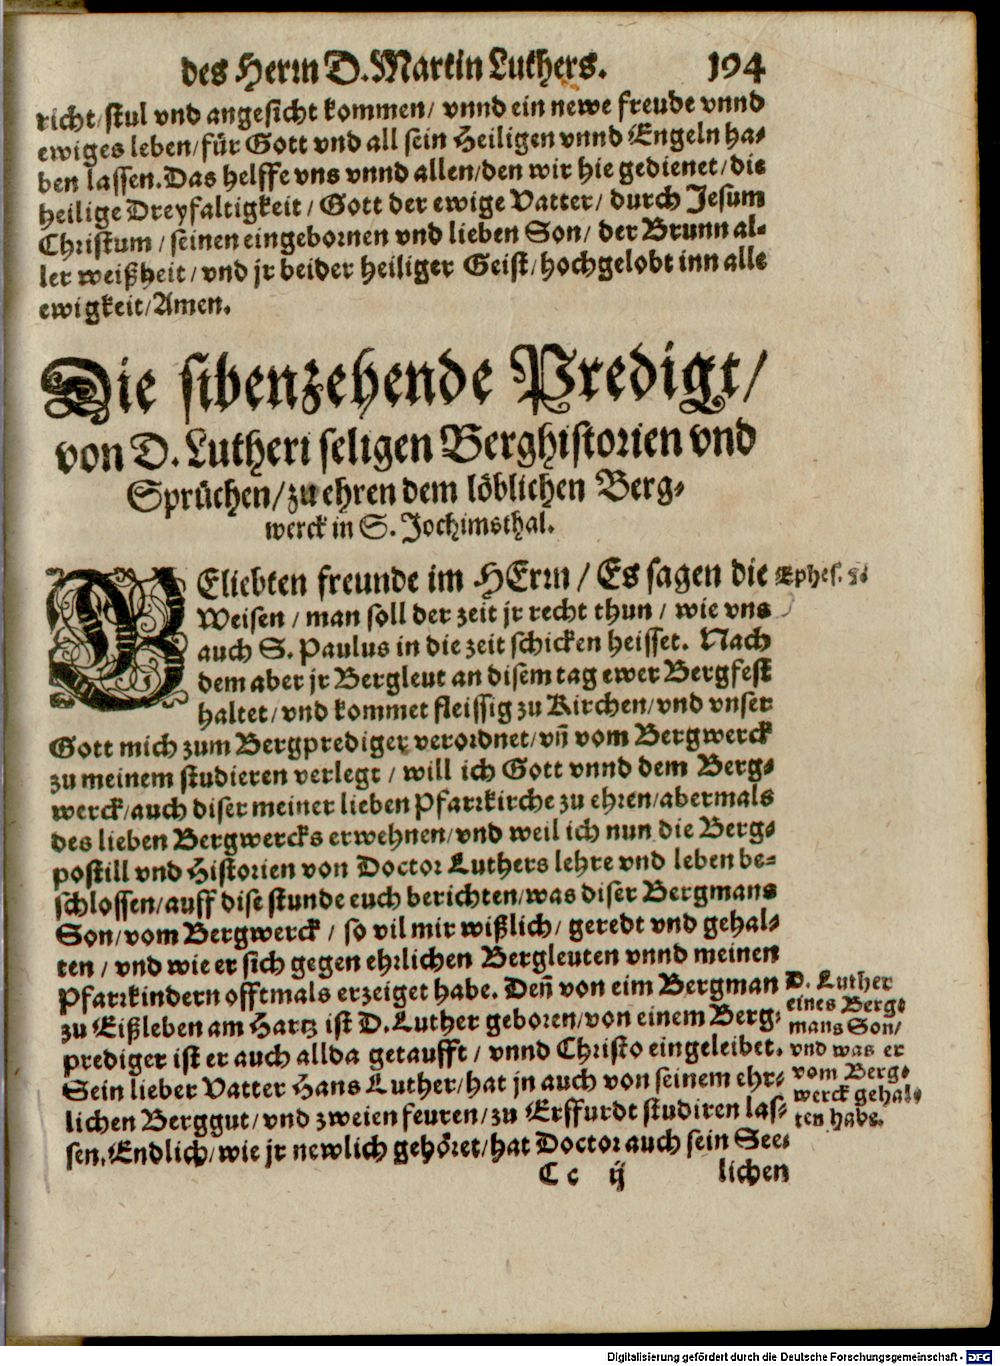 des Herrn D. Martin Luthers. 194
richt/ stul vnd angesicht kommen/ vnnd ein newe freude vnnd
ewiges leben/ für Gott vnd all sein Heiligen vnnd Engeln ha-
ben lassen. Das helffe vns vnnd allen/ den wir hie gedienet/ die
heilige Dreyfaltigkeit/ Gott der ewige Vatter/ durch Jesum
Christum/ seinen eingebornen vnd lieben Son/ der Brunn al-
ler weißheit/ vnd jr beider heiliger Geist/ hochgelobt inn alle
ewigkeit/ Amen.
Die sibenzehende Predigt/
von D. Lutheri seligen Berghistorien vnd
Sprüchen/ zu ehren dem löblichen Berg-
werck in S. Jochimsthal.
GEliebten freunde im HErrn/ Es sagen die
Weisen/ man soll der zeit jr recht thun/ wie vns
auch S. Paulus in die zeit schicken heisset. Nach
dem aber jr Bergleut an disem tag ewer Bergfest
haltet/ vnd kommet fleissig zu Kirchen/ vnd vnser
Gott mich zum Bergprediger verordnet/ vñ vom Bergwerck
zu meinem studieren verlegt/ will ich Gott vnnd dem Berg-
werck/ auch diser meiner lieben Pfarrkirche zu ehren/ abermals
des lieben Bergwercks erwehnen/ vnd weil ich nun die Berg-
postill vnd Historien von Doctor Luthers lehre vnd leben be-
schlossen/ auff dise stunde euch berichten/ was diser Bergmans
Son/ vom Bergwerck/ so vil mir wißlich/ geredt vnd gehal-
ten/ vnd wie er sich gegen ehrlichen Bergleuten vnnd meinen
Pfarrkindern offtmals erzeiget habe. Deñ von eim Bergman
zu Eißleben am Hartz ist D. Luther geboren/ von einem Berg-
prediger ist er auch allda getaufft/ vnnd Christo eingeleibet.
Sein lieber Vatter Hans Luther/ hat jn auch von seinem ehr-
lichen Berggut/ vnd zweien feuren/ zu Erffurdt studiren las-
sen. Endlich/ wie jr newlich gehöret/ hat Doctor auch sein See-
Cc ij lichen
Ephes. 5.
D. Luther
eines Berg-
mans Son/
vnd was er
vom Berg-
werck gehal-
ten habe.
Digitalisierung gefördert durch die Deutsche Forschungsgemeinschaft - DFG